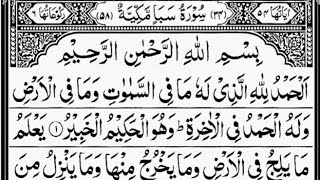 اٰیَاتُهَا ٥٤ (٣٤) سُوْرَةُ سَبَاٍ مَّكِّیَّةٌ (٥٨) رُكُوْعَاتُهَا ٦
بِسْمِ اللهِ الرَّحْمٰنِ الرَّحِیْمِ
اَلْحَمْدُ لِلّٰهِ الَّذِیْ لَهٗ مَا فِی السَّمٰوٰتِ وَمَا فِی الْاَرْضِ
وَلَهُ الْحَمْدُ فِی الْاٰخِرَةِ ؕ وَهُوَ الْحَكِیْمُ الْخَبِیْرُ ۝١ یَعْلَمُ
مَا یَلِجُ فِی الْاَرْضِ وَمَا یَخْرُجُ مِنْهَا وَمَا یَنْزِلُ مِنَ